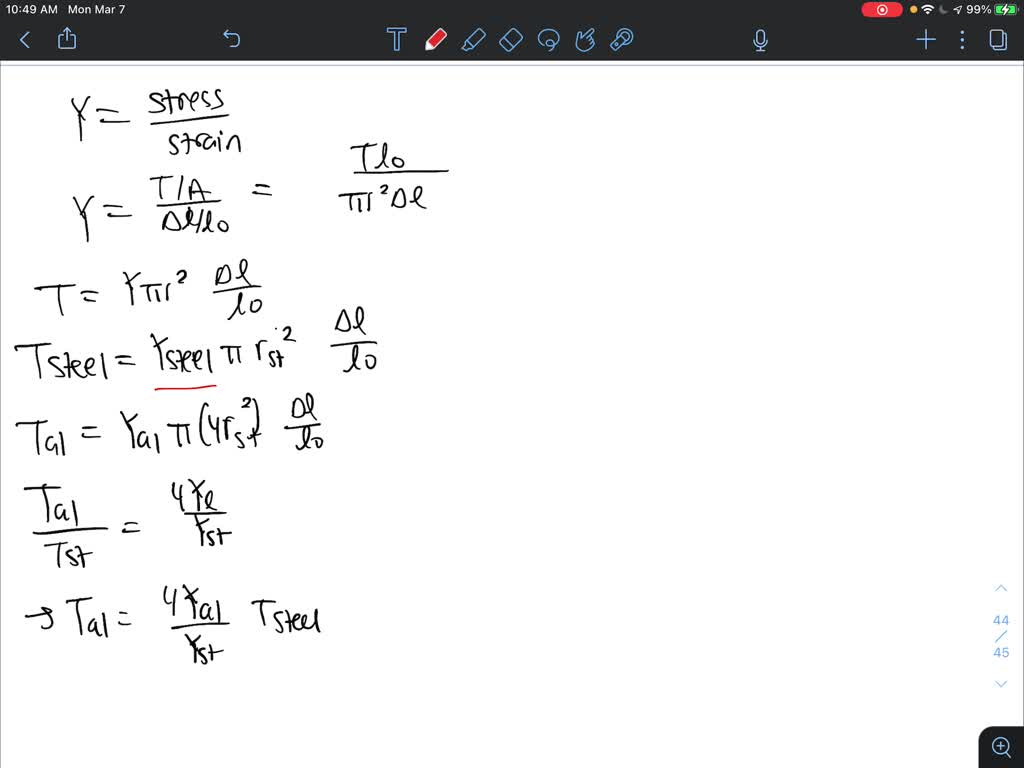 10:49 AM Mon Mar 7
99%
T
Y = stress / strain
Y = T/A / Δl/l0 = Tl0 / πr² Δl
T = Yπr² Δl / l0
Tsteel = Ysteel π rst² Δl / l0
Tal = Yal π(4rst²) Δl / l0
Tal / Tst = 4Yl / Yst
→ Tal = 4Yal / Yst Tsteel
44
/
45